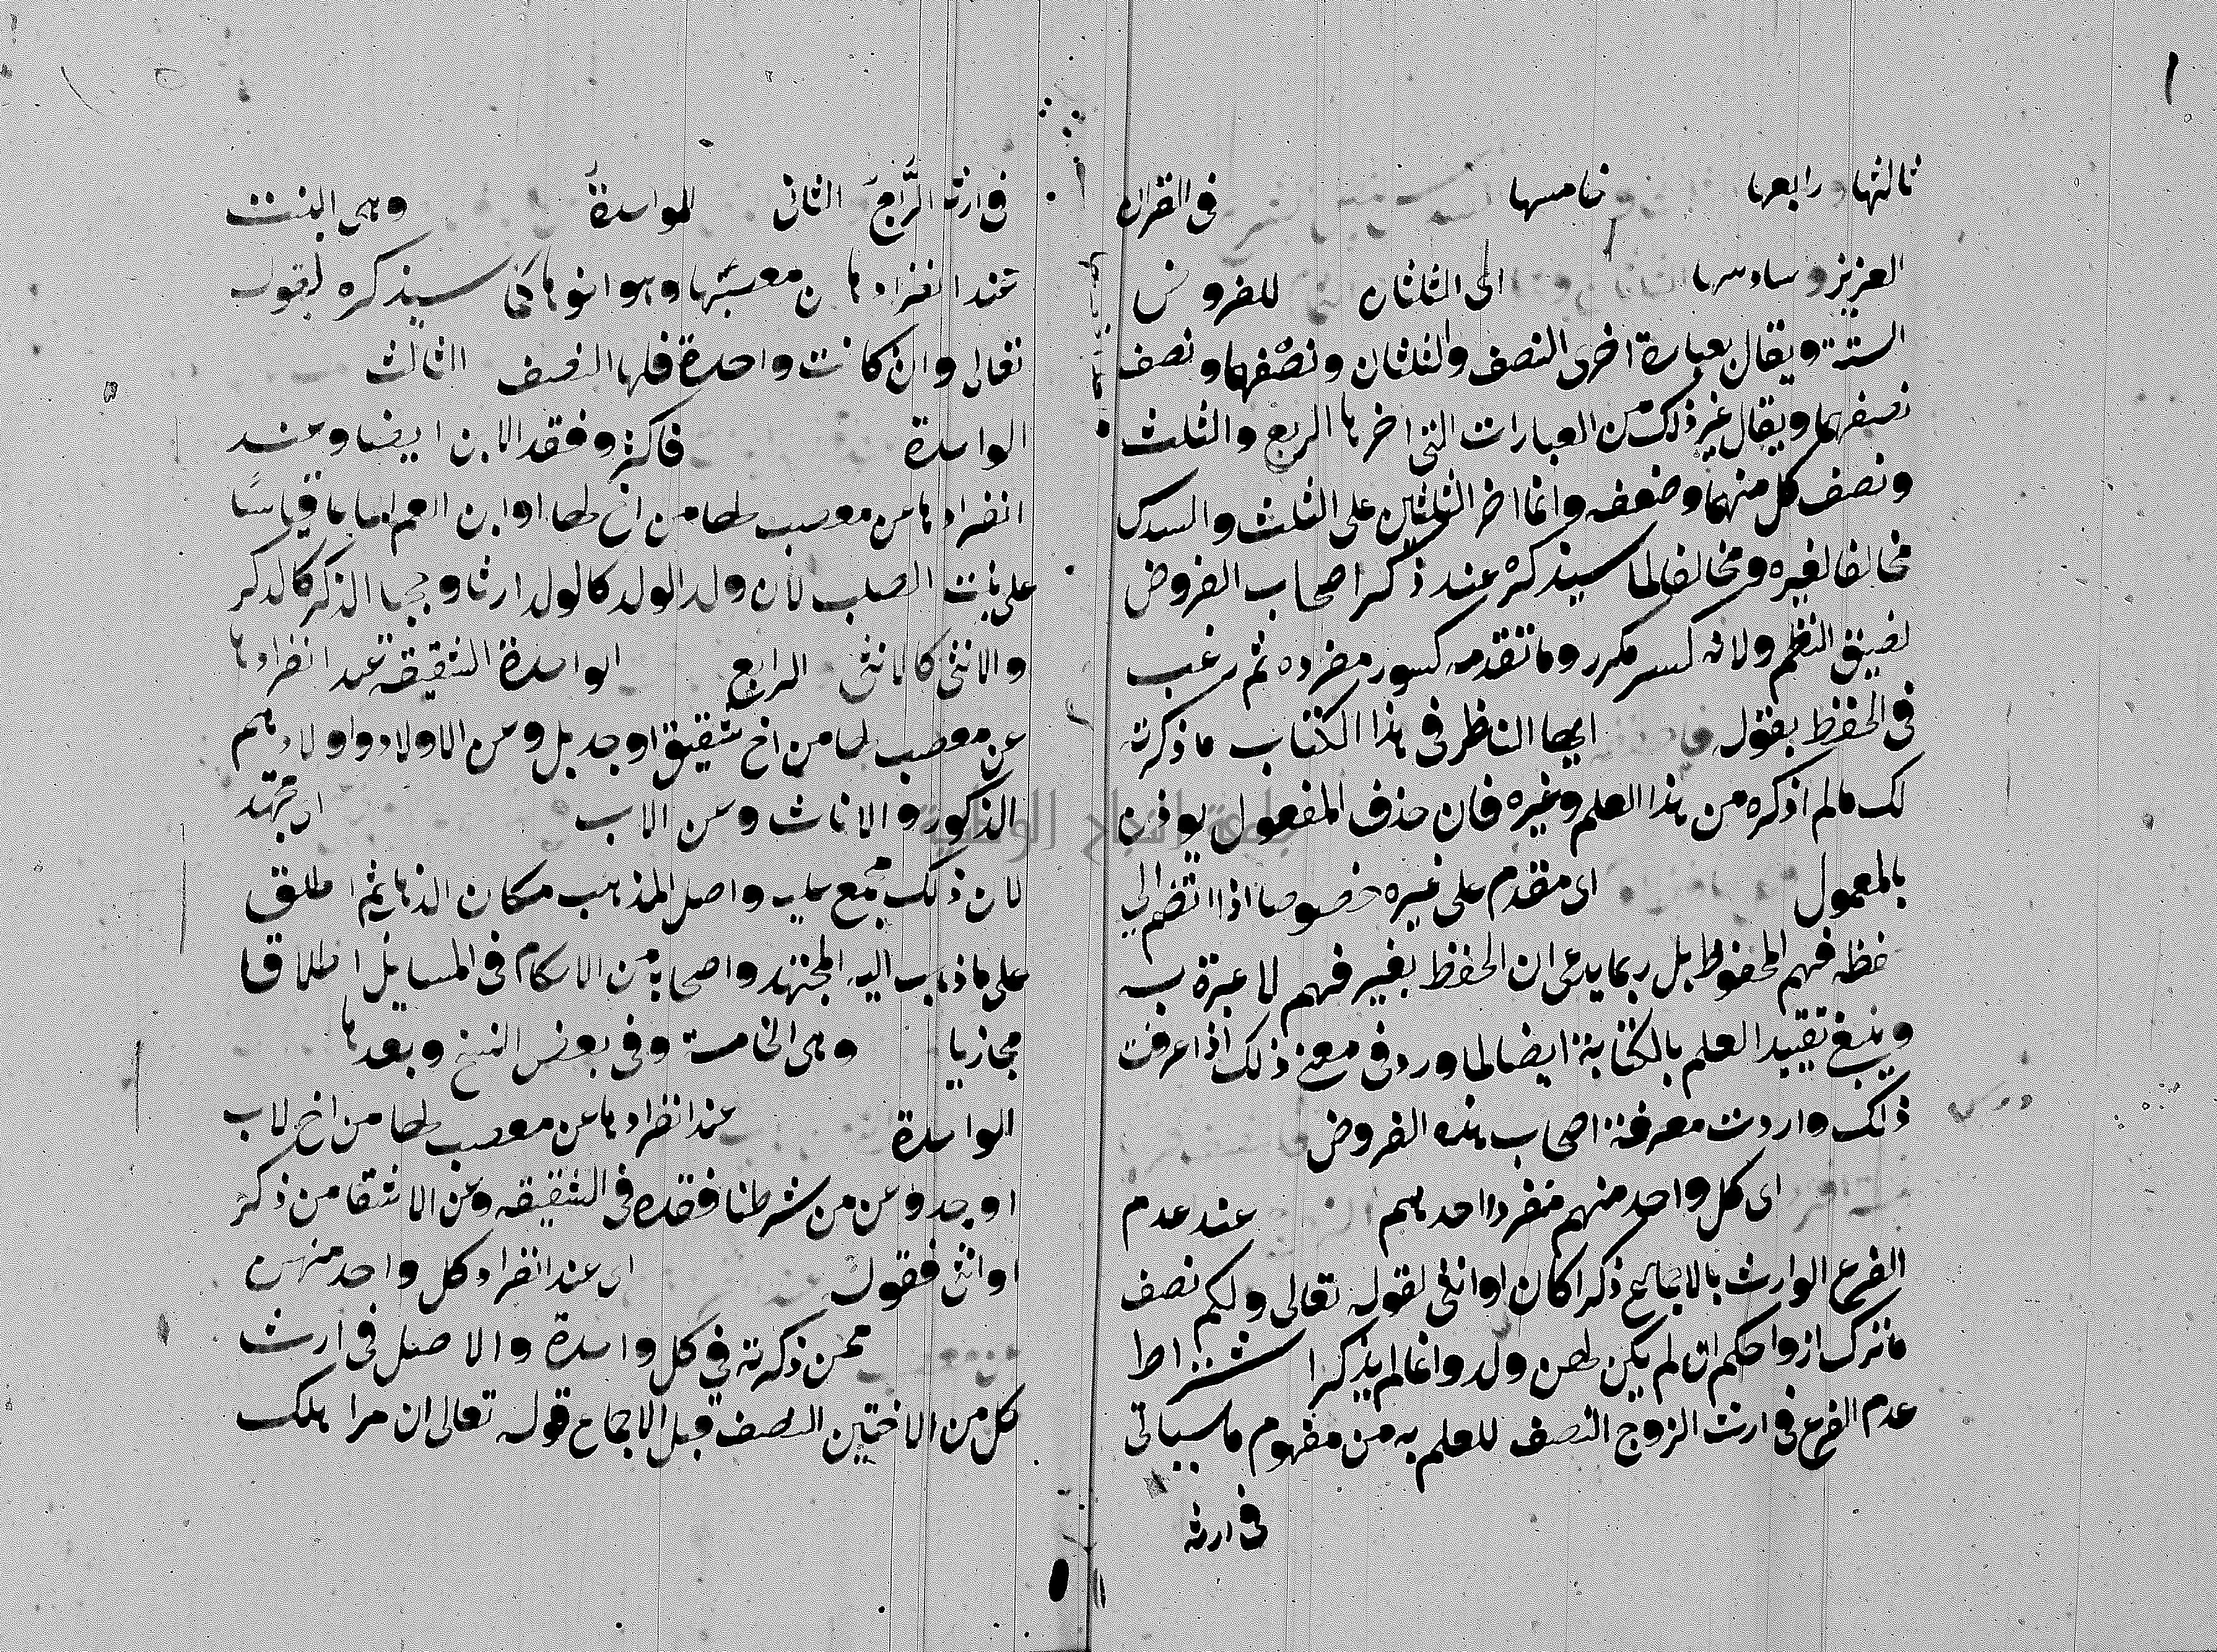 ثالثها رابعها خامسها في القران
العزيز و سادسها اى الثلثان للفروض
الستة ويقال بعبارة اخرى النصف والثلثان ونصفهما ونصف
نصفهما ويقال غير ذلك من العبارات التي اخرها الربع والثلث
ونصف كل منهما وضعفه وانما اخر الثلثين على الثلث والسدس
مخالفا لغيره ومخالفا لما سيذكره عند ذكر اصحاب الفروض
لضيق النظم ولانه كسر مكرر وما تقدمه كسور مفرده ثم رغب
في الحفظ بقوله ايها الناظر في هذا الكتاب ما ذكرته
لك مالم اذكره من هذا العلم وغيره فان حذف المفعول يوذن
بالمعمول اى مقدم على غيره خصوصا اذا انضم الي
حفظه فهم المحفوظ بل ربما يدعى ان الحفظ بغير فهم لا عبرة به
وينبغ تقييد العلم بالكتابة ايضا لما ورد في معنى ذلك اذا عرفت
ذلك واردت معرفة اصحاب هذه الفروض
اى كل واحد منهم منفردا احدهم عند عدم
الفرع الوارث بالاجماع ذكرا كان او انثى لقوله تعالى ولكم نصف
ما ترك ازواجكم ان لم يكن لهن ولد وانما لم يذكر اشتراط
عدم الفرع في ارث الزوج النصف للعلم به من مفهوم ما سياتى
في ارثه
في ارثه الرُّبع الثانى الواحدة وهى البنت
عند انفرادها عن معصبها وهو اخوها كما سيذكره لقوله
تعالى وان كانت واحدة فلها النصف الثالث
الواحدة فاكثر وفقد الابن ايضا وعند
انفرادها من معصب لها من اخ لها او ابن العم قياسًا
على بنت الصلب لان ولد الولد كالولد ارثا وحجبا الذكر كالذكر
والانثى كالانثى الرابع الواحدة الشقيقة عند انفرادها
عن معصب لها من اخ شقيق او جد بل ومن الاولاد واولادهم
الذكور والاناث وعن الاب اى مجتهد
لان ذلك مجمع عليه واصل المذهب مكان الذهاب ثم اطلق
على ما ذهب اليه المجتهد واصحابه من الاحكام في المسايل اطلاقا
مجازيا وهى الخامسة وفي بعض النسخ وبعدها
الواحدة عند انفرادها عن معصب لها من اخ لاب
او جد وعن من شرطنا فقده في الشقيقة وعن الاشقا من ذكر
او انثى فقوله اى عند انفراد كل واحد منهن
عمن ذكرته في كل واحدة والاصل في ارث
كل من الاختين النصف قبل الاجماع قوله تعالى ان مرا هلك
جامعة النجاح الوطنية